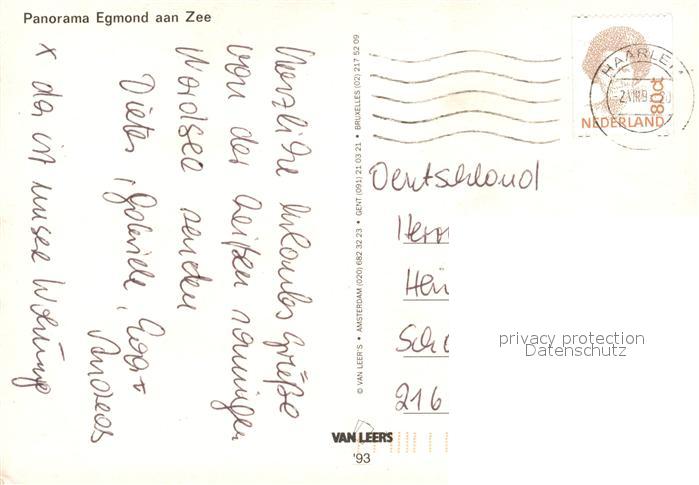 Panorama Egmond aan Zee
Herzliche Urlaubsgrüße
von der heißen sonnigen
Nordsee senden
Dieter, Gabriele, Eva +
Andreas
x da ist unsere Wohnung
© VAN LEER'S • AMSTERDAM (020) 682 32 23 • GENT (091) 21 03 21 • BRUXELLES (02) 217 52 09
HAARLEM
80ct
NEDERLAND
Deutschland
Herr
Hei
Sch
216
privacy protection
Datenschutz
VAN LEER'S
'93